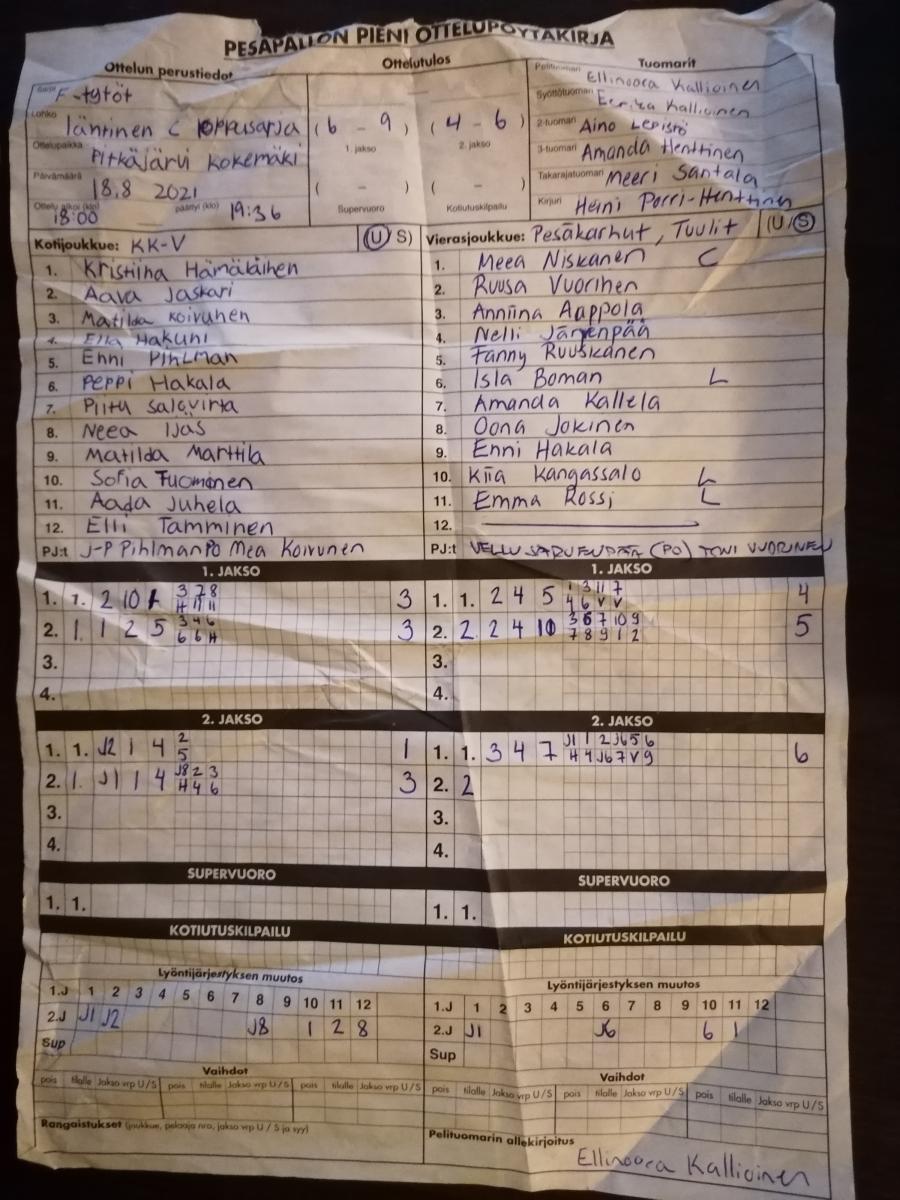 PESÄPALLON PIENI OTTELUPÖYTÄKIRJA
Ottelun perustiedot
Ottelutulos
Tuomarit
Sarja F-tytöt
Lohko läntinen C loppusarja
Ottelupaikka Pitkäjärvi Kokemäki
Päivämäärä 18.8 2021
Ottelu alkoi (klo) 18:00 päättyi (klo) 19:36
( 6 - 9 ) ( 4 - 6 )
1. jakso 2. jakso
( - ) ( - )
Supervuoro Kotiutuskilpailu
Pelituomari Ellinoora Kallioinen
Syöttötuomari Eerika Kallioinen
2-tuomari Aino Lepistö
3-tuomari Amanda Henttinen
Takarajatuomari Meeri Santala
Kirjuri Heini Porri-Henttinen
Kotijoukkue: KK-V (U S)
1. Kristiina Hämäläinen
2. Aava Jaskari
3. Matilda Koivunen
4. Ella Hakuni
5. Enni Pihlman
6. Peppi Hakala
7. Piitu Salovirta
8. Neea Ijäs
9. Matilda Marttila
10. Sofia Tuominen
11. Aada Juhela
12. Elli Tamminen
PJ:t J-P Pihlman PO Mea Koivunen
Vierasjoukkue: Pesäkarhut, Tuulit (U/S)
1. Meea Niskanen C
2. Ruusa Vuorinen
3. Anniina Aappola
4. Nelli Järvenpää
5. Fanny Ruuskanen
6. Isla Boman L
7. Amanda Kallela
8. Oona Jokinen
9. Enni Hakala
10. Kiia Kangassalo L
11. Emma Rossi L
12.
PJ:t VELLU JÄRVENPÄÄ (PO) TONI VUORINEN
1. JAKSO
3 7 8
1. 1. 2 10 1 3
H 11 11
3 4 6
2. 1 1 2 5 3
6 6 H
3.
4.
1. JAKSO
1 3 11 7
1. 1. 2 4 5 4
4 6 V V
3 6 7 10 9
2. 2 2 4 10 5
7 8 9 1 2
3.
4.
2. JAKSO
2
1. 1. J2 1 4 1
5
J8 2 3
2. 1. J1 1 4 3
H 4 6
3.
4.
2. JAKSO
J1 1 2 J6 5 6
1. 1. 3 4 7 6
H 4 J6 7 V 9
2. 2
3.
4.
SUPERVUORO
1. 1.
SUPERVUORO
1. 1.
KOTIUTUSKILPAILU
KOTIUTUSKILPAILU
Lyöntijärjestyksen muutos
1.J 1 2 3 4 5 6 7 8 9 10 11 12
2.J J1 J2 J8 1 2 8
Sup
Lyöntijärjestyksen muutos
1.J 1 2 3 4 5 6 7 8 9 10 11 12
2.J J1 J6 6 1
Sup
Vaihdot
pois tilalle Jakso vrp U/S pois tilalle Jakso vrp U/S pois tilalle Jakso vrp U/S
Vaihdot
pois tilalle Jakso vrp U/S pois tilalle Jakso vrp U/S pois tilalle Jakso vrp U/S
Rangaistukset (joukkue, pelaaja nro, jakso vrp U / S ja syy)
Pelituomarin allekirjoitus
Ellinoora Kallioinen